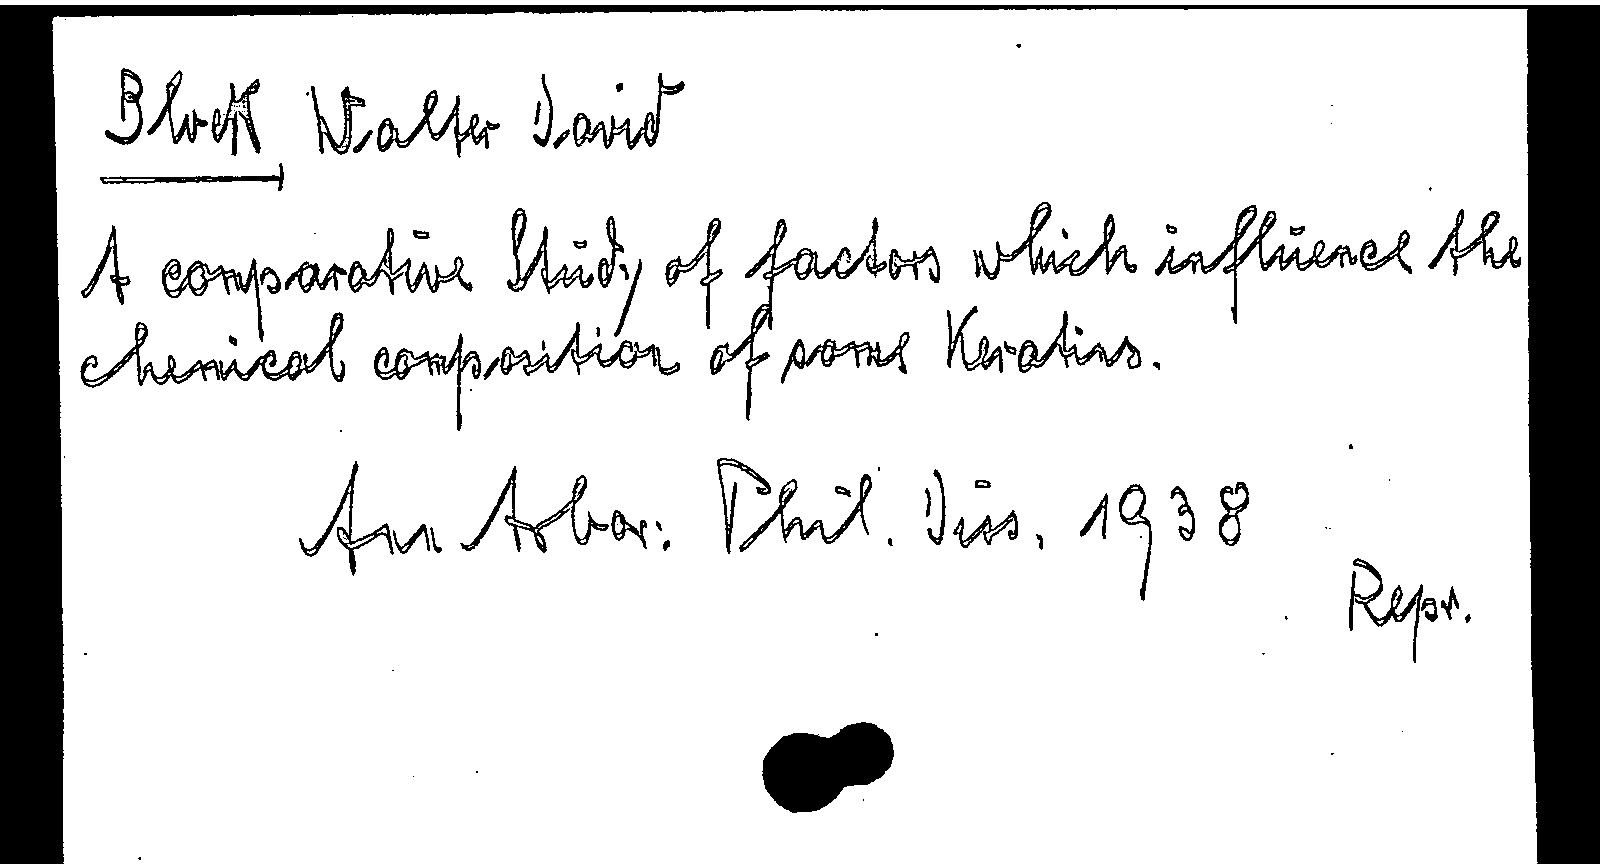 Block Walter David
A comparative Study of factors which influence the
chemical composition of some Keratins.
Ann Arbor: Phil. Diss. 1938
Repr.